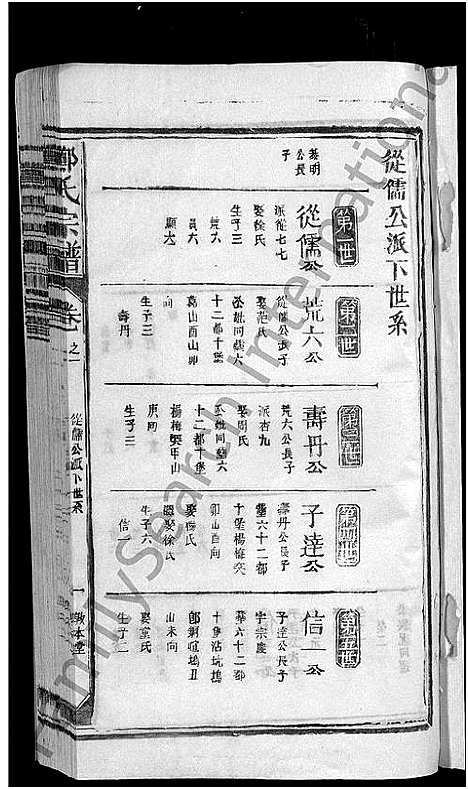 從儒公派下世系
英明
公長
子
第一世
從儒公
派從七七
娶徐氏
生子三
荒六
員六
顯六
第二世
荒六公
從儒公長子
娶范氏
公妣同墓六
十二都十堡
葛山酉山卯
向
生子三
壽丹
第三世
壽丹公
荒六公長子
派杏九
娶周氏
公妣同墓六
十二都十堡
楊梅突甲山
庚向
生子三
第四世
子達公
壽丹公長子
墓六十二都
十堡楊梅突
卯山酉向
娶驗氏
繼娶徐氏
生子六
信一
第五世
信一公
子達公長子
字宗慶
墓六十二都
十堡沾坑塢
山未向
娶童氏
生子二
鄭氏宗譜
卷之一
從儒公派下世系
一
敦本堂
FamilySearch International